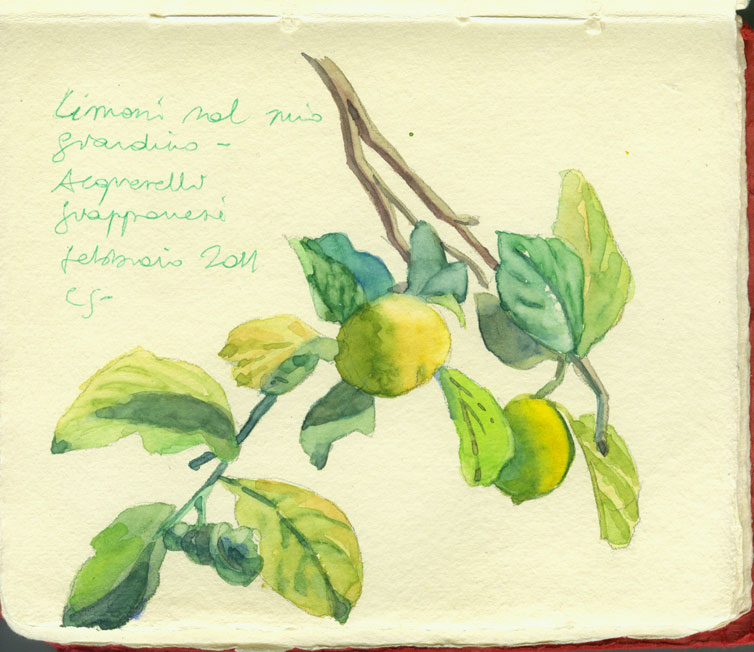 Limoni nel mio
giardino -
Acquerelli
giapponesi
febbraio 2011
CS-